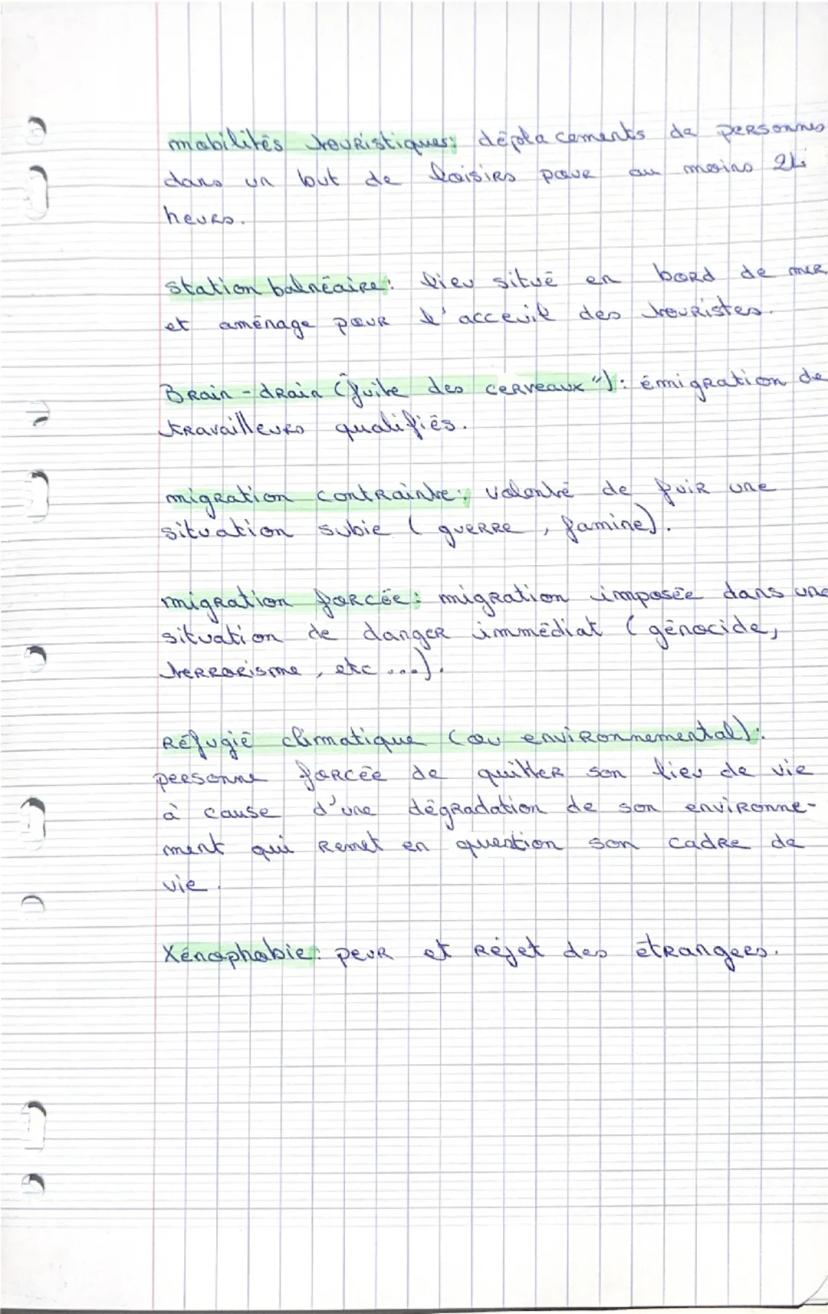 mobilités touristiques: déplacements de personnes
dans un but de loisirs pour au moins 24
heurs.
station balnéaire: lieu situé en bord de mer
et aménagé pour l'acceuil des touristes.
Brain-drain ("fuite des cerveaux"): émigration de
travailleurs qualifiés.
migration contrainte: volonté de fuir une
situation subie (guerre, famine).
migration forcée: migration imposée dans une
situation de danger immédiat (génocide,
terrorisme, etc...).
Réfugié climatique (ou environnemental):
personne forcée de quitter son lieu de vie
à cause d'une dégradation de son environne-
ment qui remet en question son cadre de
vie.
Xénophobie: peur et réjet des étrangers.